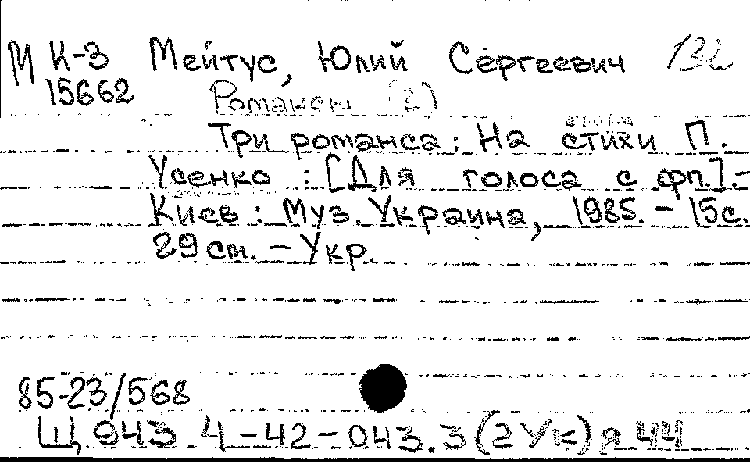 М К-3 Мейтус, Юлий Сергеевич 132
15662 Романсы (2)
Три романса: На стихи П.
Усенко : [Для голоса с фп.] –
Киев : Муз. Украина, 1985. – 15 с.
29 см. – Укр.
85-23/568
Щ 943.4-42-043.3(2Ук)я44